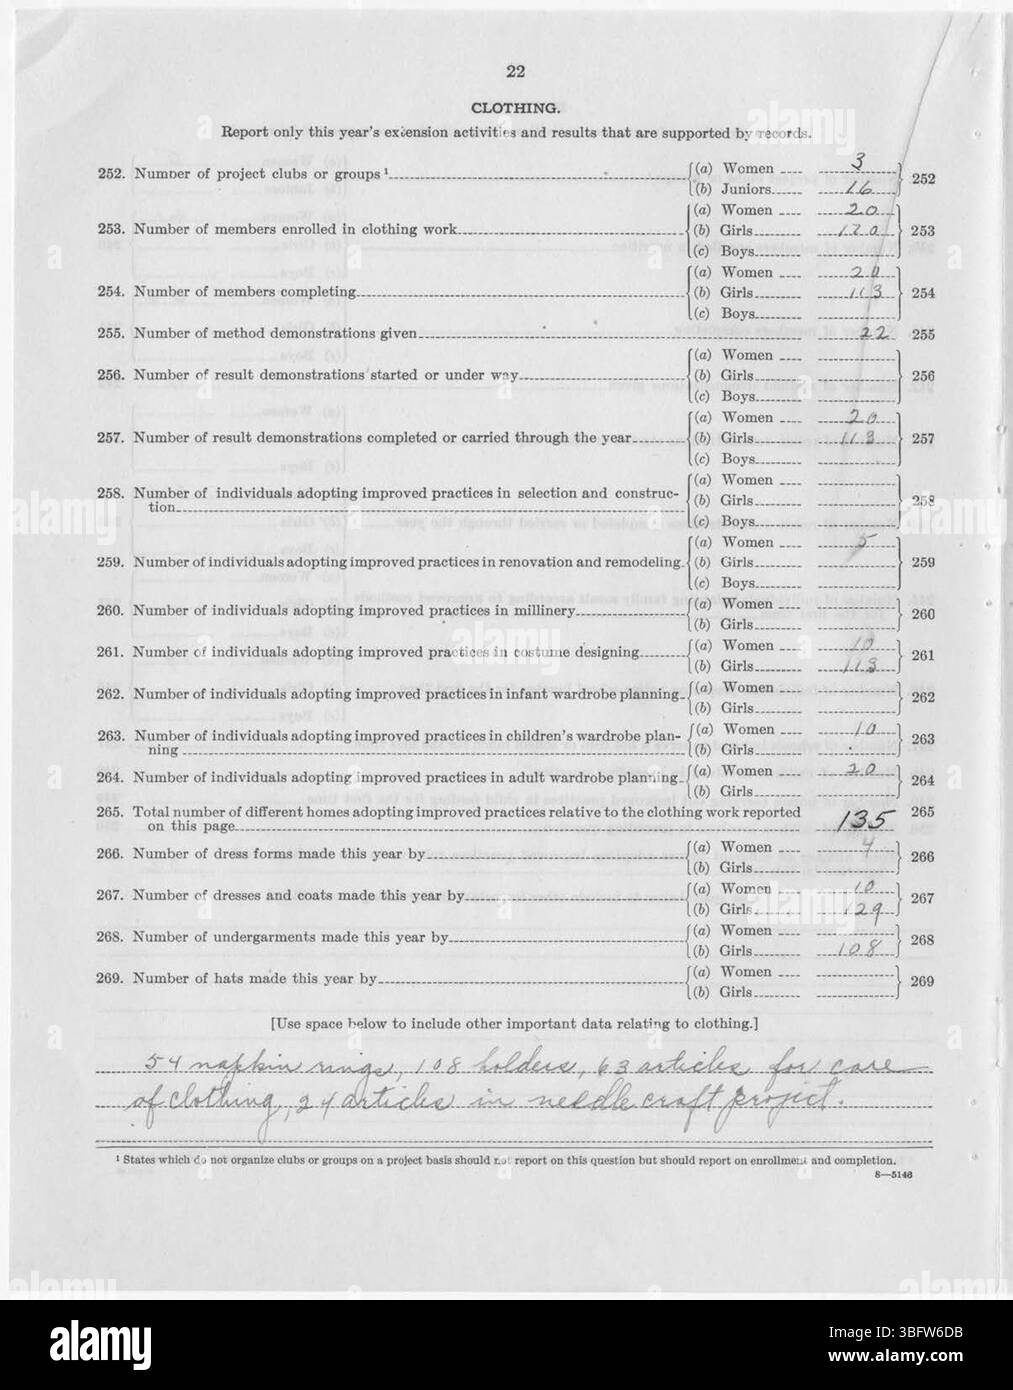 22
CLOTHING.
Report only this year's extension activities and results that are supported by records.
252. Number of project clubs or groups ¹ (a) Women 3 252
(b) Juniors 16
253. Number of members enrolled in clothing work (a) Women 20
(b) Girls 120 253
(c) Boys
254. Number of members completing (a) Women 20
(b) Girls 113 254
(c) Boys
255. Number of method demonstrations given 22 255
256. Number of result demonstrations started or under way (a) Women
(b) Girls 256
(c) Boys
257. Number of result demonstrations completed or carried through the year (a) Women 20
(b) Girls 113 257
(c) Boys
258. Number of individuals adopting improved practices in selection and construc-
tion (a) Women
(b) Girls 258
(c) Boys
259. Number of individuals adopting improved practices in renovation and remodeling (a) Women 5
(b) Girls 259
(c) Boys
260. Number of individuals adopting improved practices in millinery (a) Women 260
(b) Girls
261. Number of individuals adopting improved practices in costume designing (a) Women 10 261
(b) Girls 113
262. Number of individuals adopting improved practices in infant wardrobe planning (a) Women 262
(b) Girls
263. Number of individuals adopting improved practices in children's wardrobe plan-
ning (a) Women 10 263
(b) Girls
264. Number of individuals adopting improved practices in adult wardrobe planning (a) Women 20 264
(b) Girls
265. Total number of different homes adopting improved practices relative to the clothing work reported 265
on this page 135
266. Number of dress forms made this year by (a) Women 4 266
(b) Girls
267. Number of dresses and coats made this year by (a) Women 10 267
(b) Girls 129
268. Number of undergarments made this year by (a) Women 268
(b) Girls 108
269. Number of hats made this year by (a) Women 269
(b) Girls
[Use space below to include other important data relating to clothing.]
54 napkin rings, 108 holders, 63 articles for care
of clothing, 24 articles in needle craft project.
¹ States which do not organize clubs or groups on a project basis should not report on this question but should report on enrollment and completion.
8—5146
alamy
Image ID: 3BFW6DB
www.alamy.com